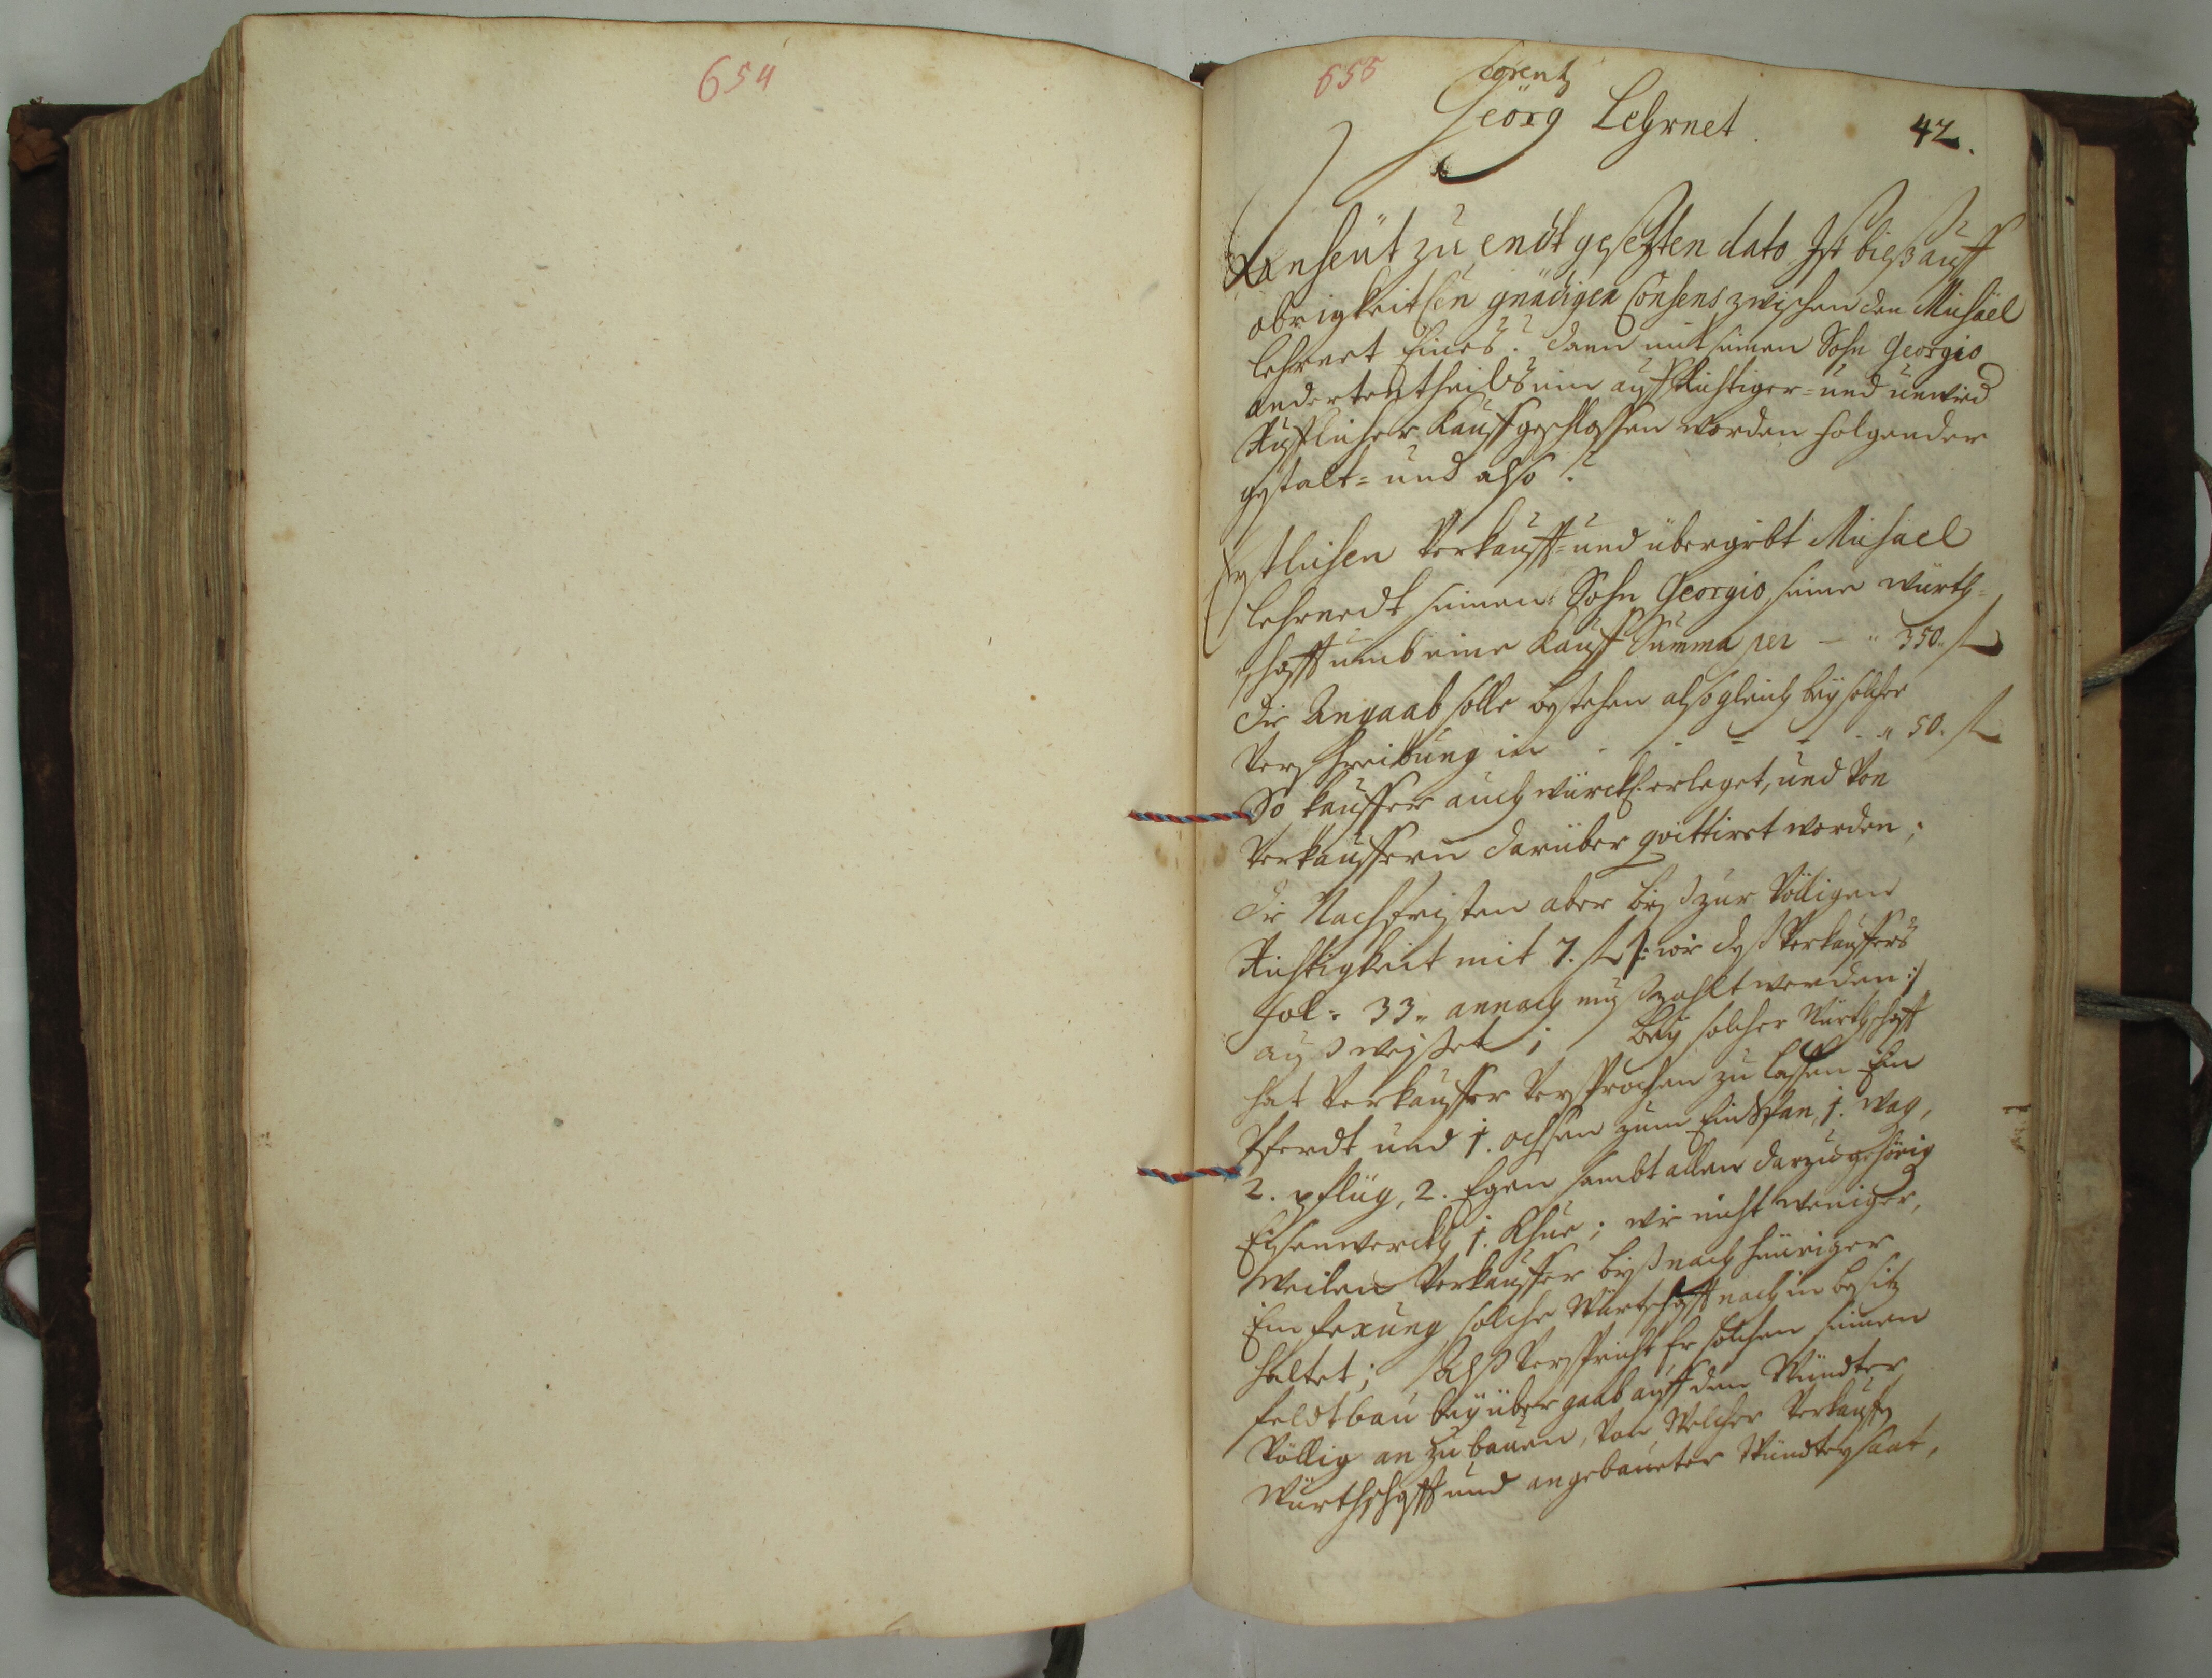 654
655
Lorentz
Georg Lehrnet.
42.
Anheut zu endt gesetzten dato Ist bieß auff
obrigkeitlen gnädigen Consens zwischen den Michäel
Lehrnet Eines: dann mit seinen Sohn Georgio
anderten theilß ein auffrichtiger- und unwid
rufflicher Kauff geschlossen worden folgender
gestalt- und also:
Erstlichen Verkaufft- und übergibt Michael
Lehrnedt seinen Sohn Georgio seine würth-
schafft umb eine Kauff Summa per — " 350. f
die Angaab solle bestehen alsogleich bey solcher
Verschreibung in - - - - - " 50. f
So kauffer auch würckl. erleget, und von
Verkauffern darüber quittiret worden;
die Nachfristen aber biß zur völligen
Richtigkeit mit 7. f /: wie deß Verkauffers
fol: 33. annoch muß zahlt werden :/
außweißet; Bey solcher Würthschafft
hat Verkauffer Versprochen zu lassen Ein
Pferdt und 1. ochsen zum Einspan, 1. wag,
2. pflüg, 2. Egen sambt allen darzu gehörig
Eysenwerckh 1. Khue; wie nicht weniger,
weilen Verkauffer biß nach heuriger
Einfexung solche Würtschafft noch in besitz
haltet; Alß Verspricht Er solchen seinen
feldtbau bey übergaab auff den Wündter
Völlig an zu bauen, von welcher Verkaufften
Würthschafft und angebaueter Wündtersaat,